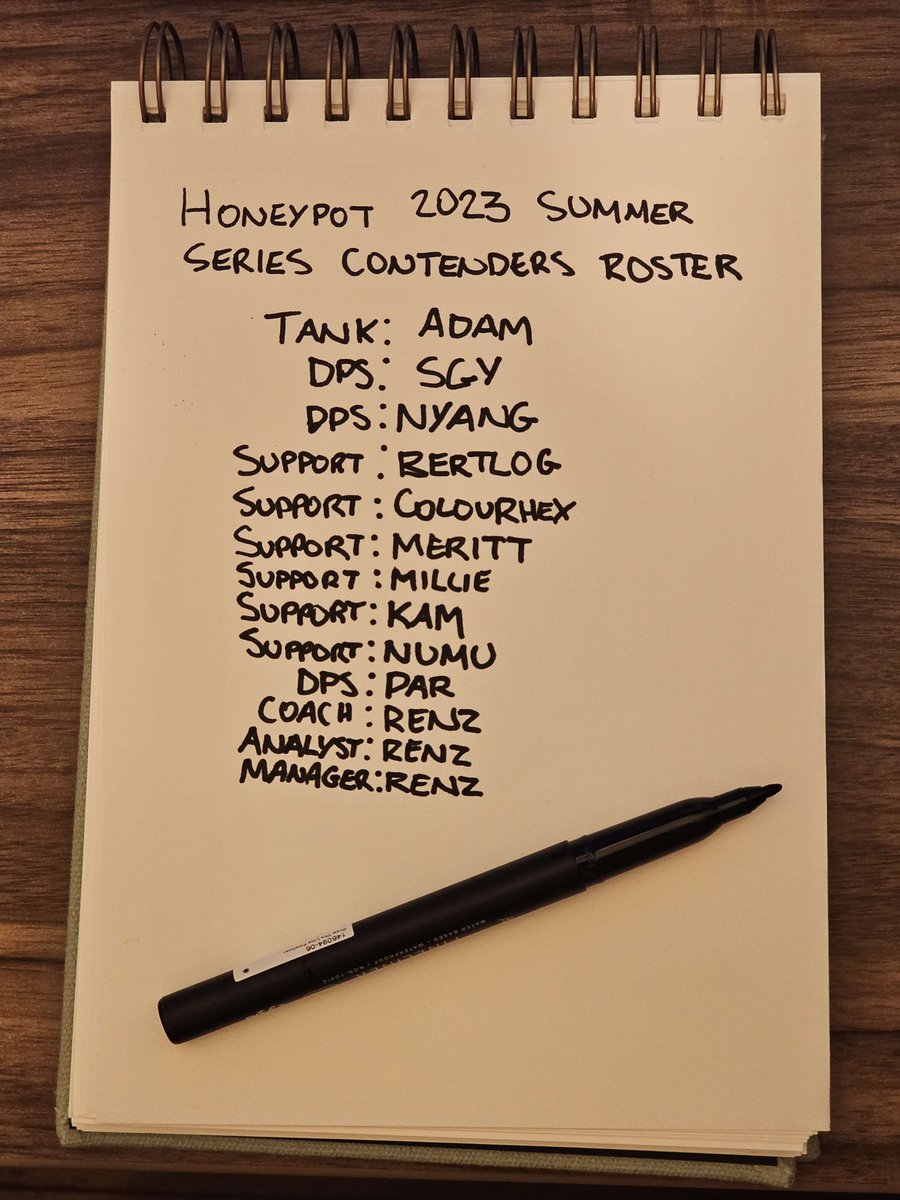 HONEYPOT 2023 SUMMER
SERIES CONTENDERS ROSTER
TANK: ADAM
DPS: SGY
DPS: NYANG
SUPPORT: BERTLOG
SUPPORT: COLOURHEX
SUPPORT: MERITT
SUPPORT: MILLIE
SUPPORT: KAM
SUPPORT: NUMU
DPS: PAR
COACH: RENZ
ANALYST: RENZ
MANAGER: RENZ
WATER BASED • WATERPROOF • NON-TOXIC
146094-06